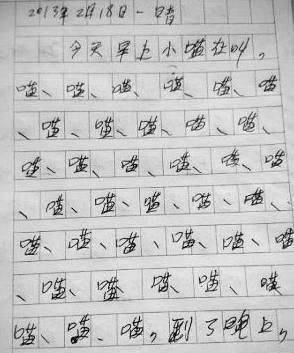 2013年2月18日一晴
今天早上小喵在叫,
喵、喵、喵、喵、喵、喵
、喵、喵、喵、喵、喵、
喵、喵、喵、喵、喵、喵
、喵、喵、喵、喵、喵、
喵、喵、喵、喵、喵、喵
、喵、喵、喵、喵、喵
喵、喵、喵,到了晚上,